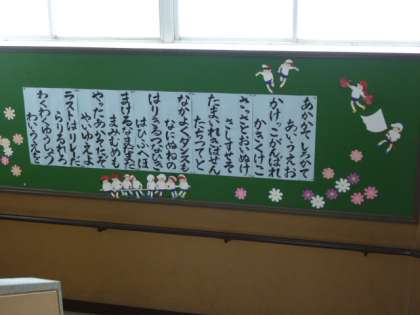 あかかて しろかて
あいうえお
かけっこ がんばれ
かきくけこ
さっさと おいぬけ
さしすせそ
たまいれ きばせん
たちつてと
なかよく ダンスを
なにぬねの
はりきる つなひき
はひふへほ
まけるな まだまだ
まみむめも
やった
やいゆえよ
ラストは リレーだ
らりるれろ
わくわく ゆうしょう
わいうえをん